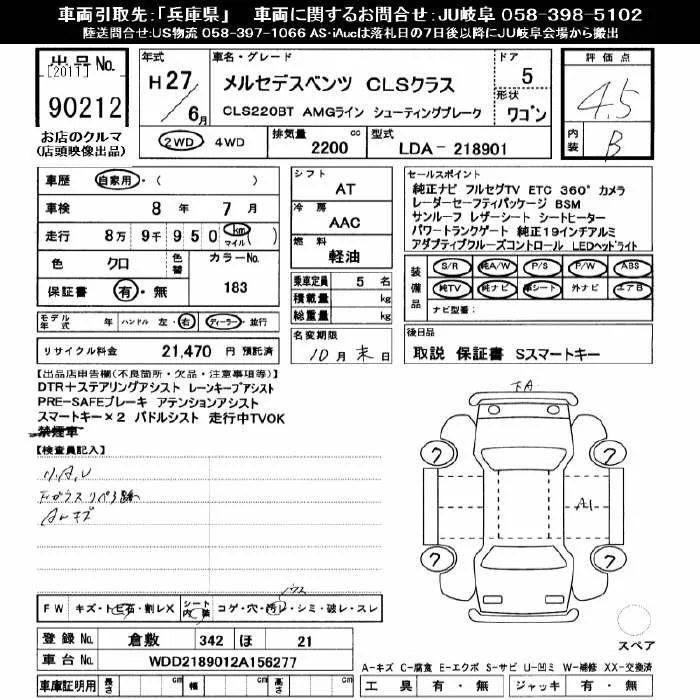 車両引取先:「兵庫県」 車両に関するお問合せ:JU岐阜 058-398-5102
陸送問合せ:US物流 058-397-1066 AS-iAucは落札日の7日後以降にJU岐阜会場から搬出
出品No.
[2011]
90212
お店のクルマ
(店頭映像出品)
年式
H27/6月
車名・グレード
メルセデスベンツ CLSクラス
CLS220BT AMGライン シューティングブレーク
ドア
5
形状
ワゴン
2WD 4WD
排気量 2200 cc
型式 LDA-218901
評価点
4.5
内装 B
車歴 自家用・( )
車検 8年 7月
走行 8万 9千 950 km マイル( )
色 クロ
色替
カラーNo. 183
保証書 有・無
シフト AT
冷房 AAC
燃料 軽油
乗車定員 5 名
積載量 kg
総重量 kg
セールスポイント
純正ナビ フルセグTV ETC 360°カメラ
レーダーセーフティパッケージ BSM
サンルーフ レザーシート シートヒーター
パワートランクゲート 純正19インチアルミ
アダプティブクルーズコントロール LEDヘッドライト
装備品
S/R 純A/W P/S P/W ABS
純TV 純ナビ 革シート 外ナビ エアB
ナビ型番:
モデル年式 年 ハンドル 左・右 ディーラー・並行
リサイクル料金 21,470 円 預託済
名変期限
10月末日
後日品
取説 保証書 Sスマートキー
【出品店申告欄(不良箇所・欠品・注意事項等)】
DTR+ステアリングアシスト レーンキープアシスト
PRE-SAFEブレーキ アテンションアシスト
スマートキー×2 パドルシスト 走行中TVOK
禁煙車
【検査員記入】
キズ
下A
ワ
ワ
A1
ワ
ワ
FW キズ・トビ石・割レX
シート内装 コゲ・穴・汚レ・シミ・破レ・スレ
登録No. 倉敷 342 ほ 21
車台No. WDD2189012A156277
車庫証明用 長さ cm 幅 cm 高さ cm
スペア
A-キズ C-腐食 E-エクボ S-サビ U-凹ミ W-補修 XX-交換済
工具 有・無 ジャッキ 有・無